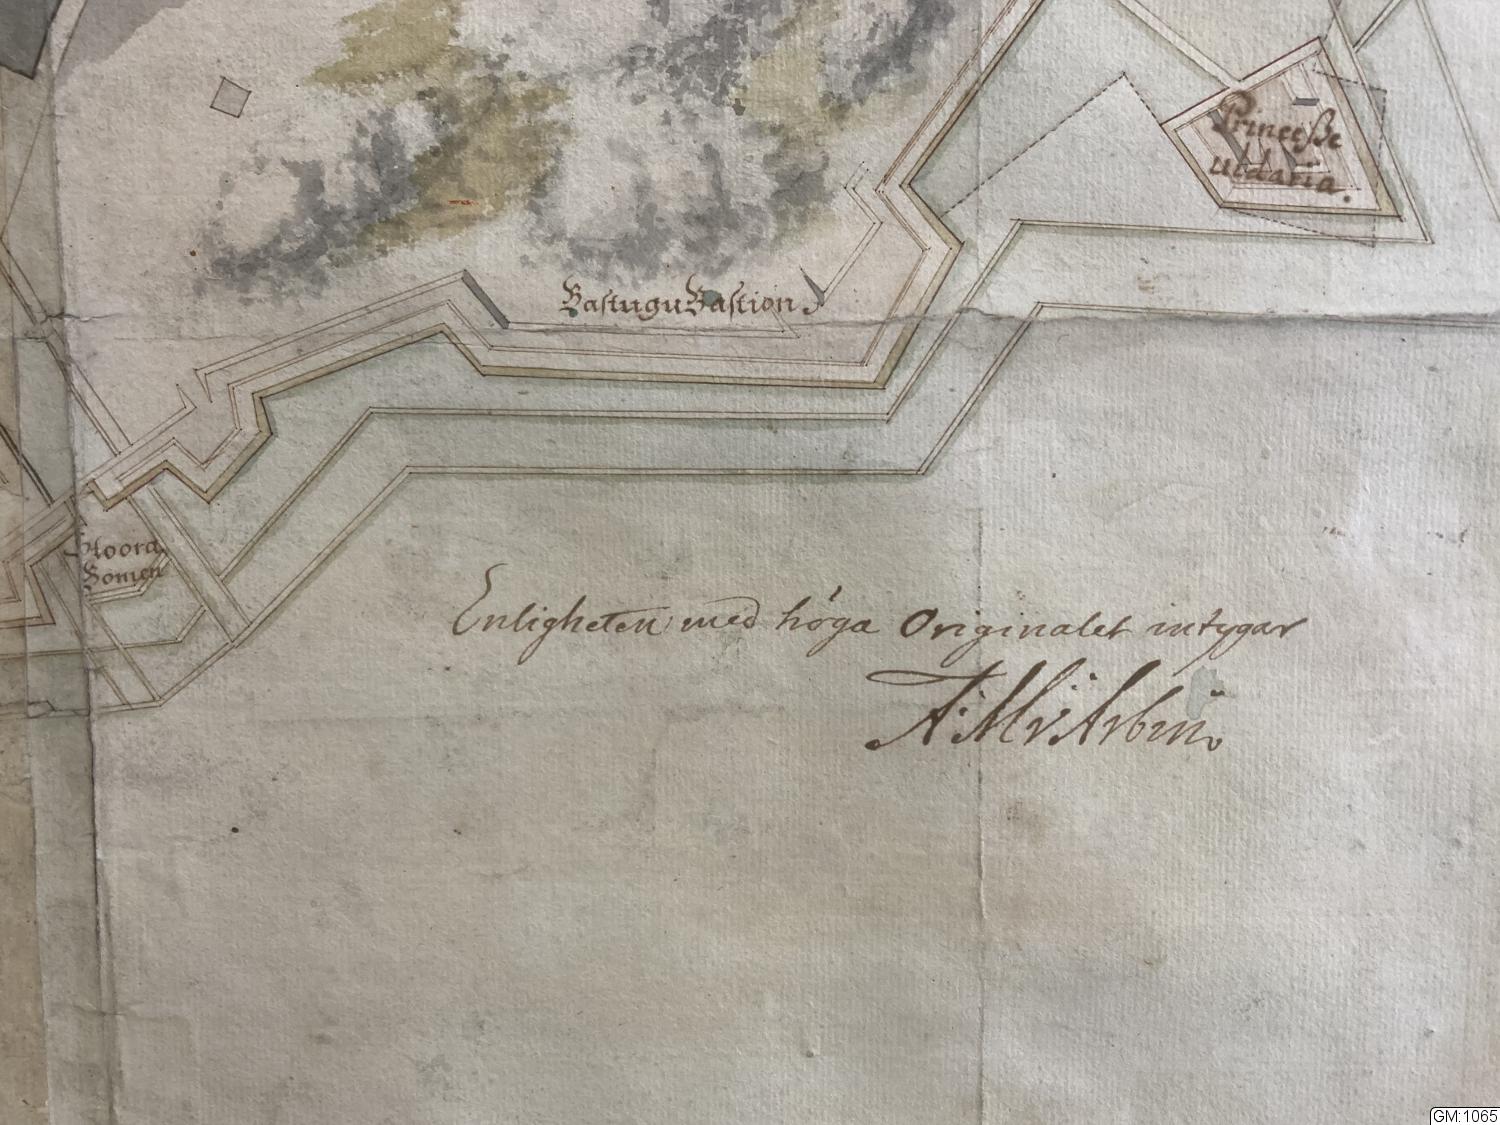 Princeße
Uldaria.
Bastugu Bastion.
Stoora
Bomen
Enligheten med höga Originalet intygar
A: M: v: Arbin.
GM:1065